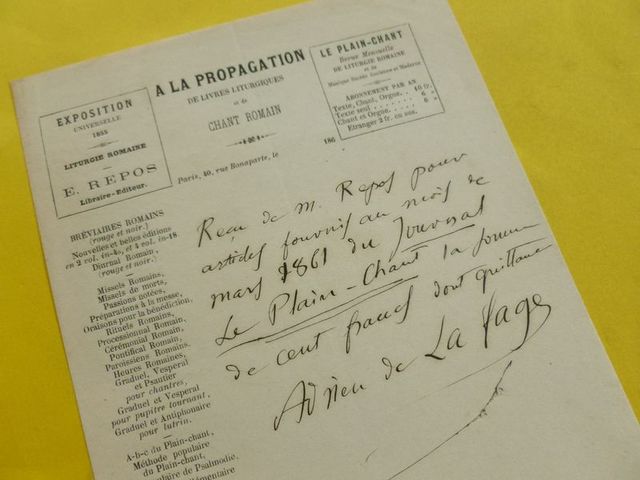 EXPOSITION
UNIVERSELLE
1855
LITURGIE ROMAINE
E. REPOS
Libraire-Editeur.
A LA PROPAGATION
DE LIVRES LITURGIQUES
et de
CHANT ROMAIN
LE PLAIN-CHANT
Revue Mensuelle
DE LITURGIE ROMAINE
et de
Musique Sacrée Ancienne et Moderne
ABONNEMENT PAR AN
Texte, Chant, Orgue. . 10 fr.
Texte seul . . . . . . . 6 »
Chant et Orgue . . . . 6 »
Etranger 2 fr. en sus.
Paris, 40, rue Bonaparte, le 186
BRÉVIAIRES ROMAINS
(rouge et noir.)
Nouvelles et belles éditions
en 2 vol. in-4o, et 4 vol. in-18.
Diurnal Romain,
(rouge et noir.)
Missels Romains,
Missels de morts,
Passions notées,
Préparations à la messe,
Oraisons pour la bénédiction,
Rituels Romains,
Processionnal Romain,
Cérémonial Romain,
Pontifical Romain,
Paroissiens Romains.
Heures Romaines,
Graduel, Vesperal
et Psautier
pour chantres,
Graduel et Vesperal
pour pupitre tournant,
Graduel et Antiphonaire
pour lutrin.
A-b-c du Plain-chant,
Méthode populaire
du Plain-chant,
de Psalmodie,
Reçu de M. Repos pour
articles fournis au mois de
mars 1861 du Journal
Le Plain-Chant la somme
de cent francs dont quittance
Adrien de La Fage